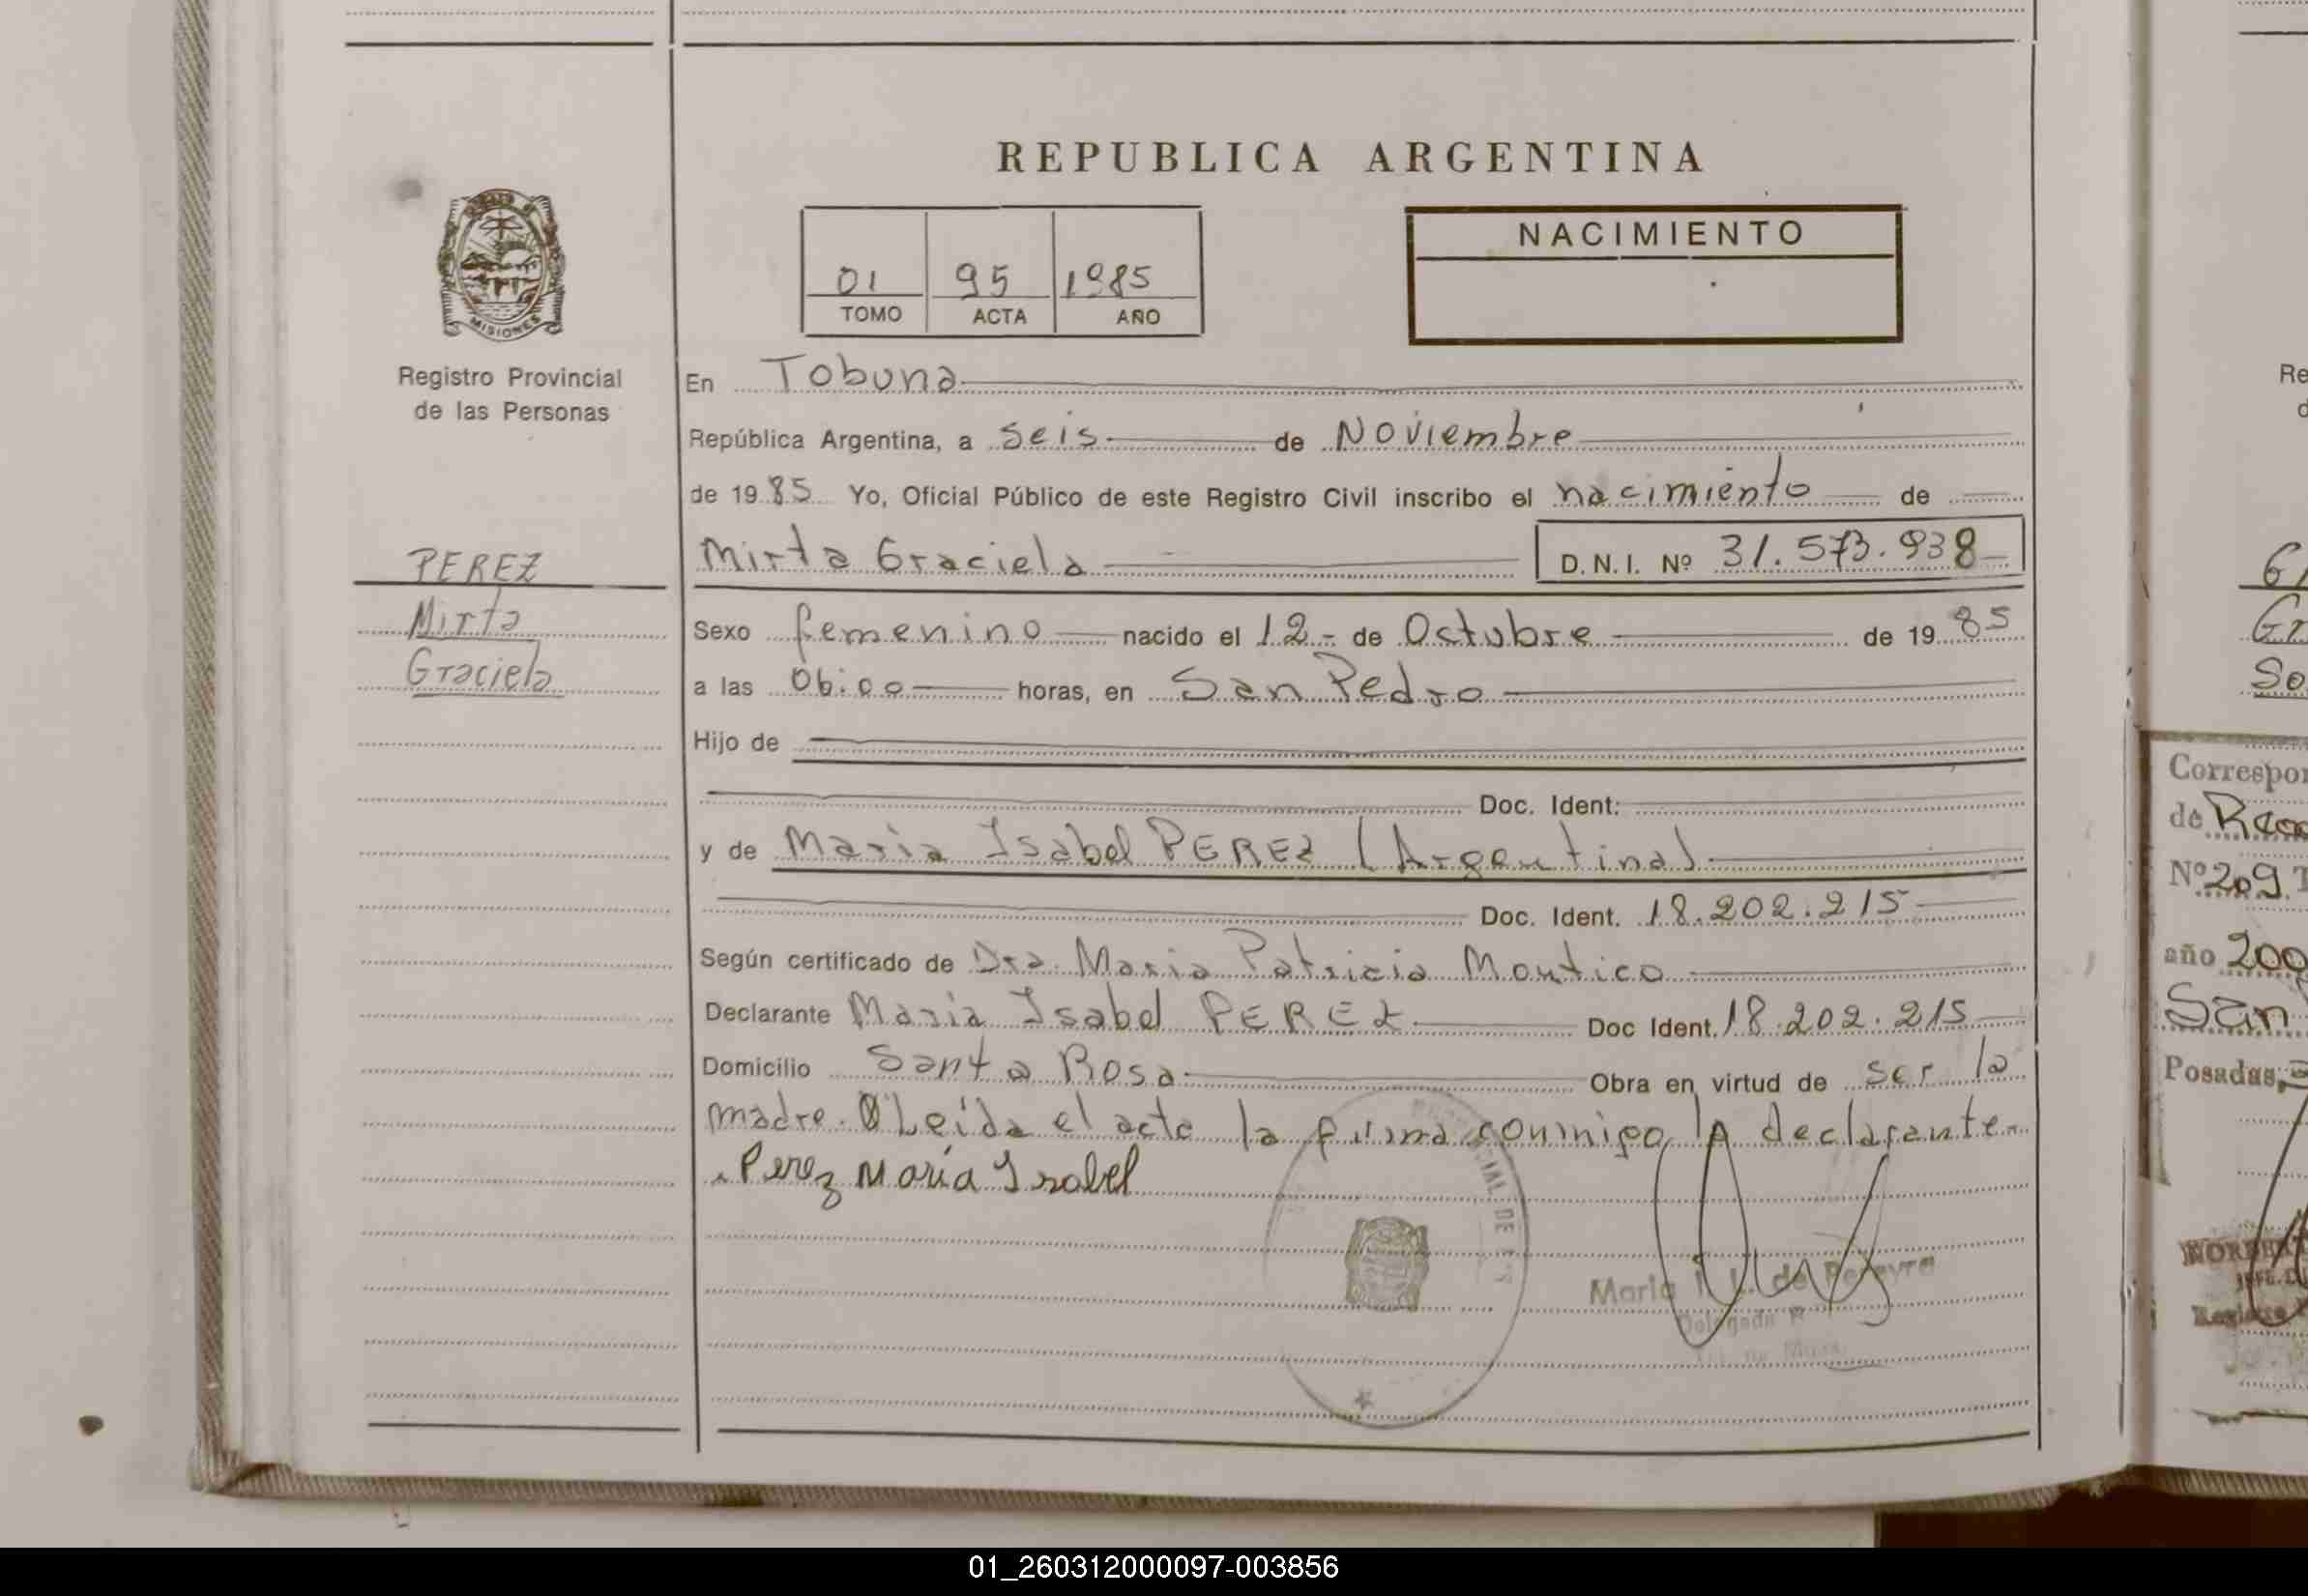 REPUBLICA ARGENTINA
MISIONES
Registro Provincial
de las Personas
PEREZ
Mirta
Graciela
01 95 1985
TOMO ACTA AÑO
NACIMIENTO
En Tobuna
República Argentina, a seis de Noviembre
de 1985 Yo, Oficial Público de este Registro Civil inscribo el nacimiento de
Mirta Graciela D.N.I. Nº 31.573.938
Sexo femenino nacido el 12 - de Octubre de 1985
a las 06:00 horas, en San Pedro
Hijo de
Doc. Ident:
y de Maria Isabel PEREZ (Argentina)
Doc. Ident. 18.202.215
Según certificado de Dra. Maria Patricia Montico
Declarante Maria Isabel PEREZ Doc Ident. 18.202.215
Domicilio Santa Rosa Obra en virtud de ser la
madre. Leída el acta la firma conmigo la declarante.
Perez María Isabel
Maria de Pereyra
Delegada
Correspon
de
Nº 209
año 200
San
Posadas,
01_260312000097-003856